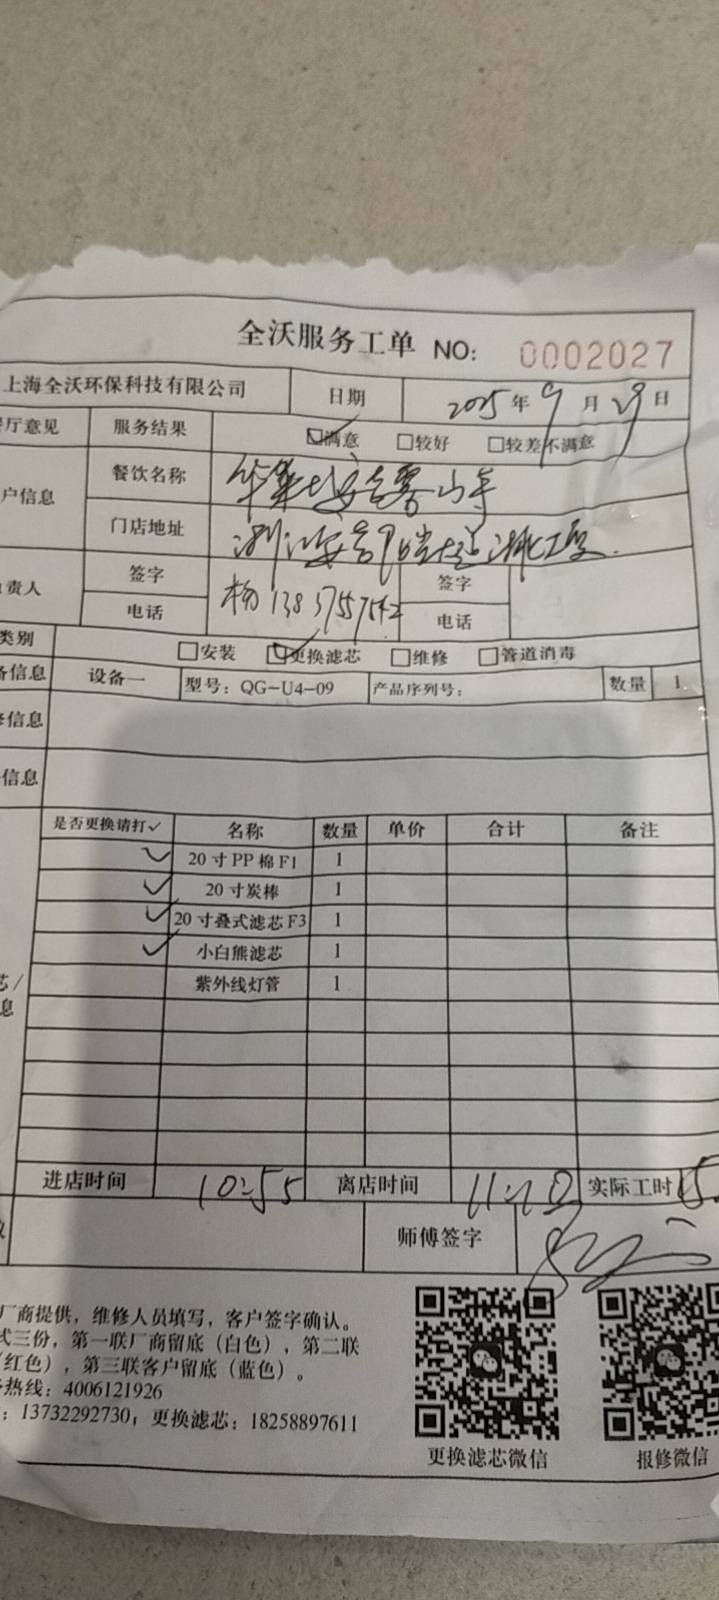 全沃服务工单 NO: 0002027
上海全沃环保科技有限公司 日期 2025年9月29日
厅意见 服务结果 ☑满意 □较好 □较差不满意
户信息 餐饮名称
门店地址
责人 签字 杨 签字
电话 13837557542 电话
类别 □安装 ☑更换滤芯 □维修 □管道消毒
备信息 设备一 型号：QG-U4-09 产品序列号： 数量 1
信息
信息
是否更换请打✓ 名称 数量 单价 合计 备注
✓ 20寸PP棉F1 1
✓ 20寸炭棒 1
✓ 20寸叠式滤芯F3 1
✓ 小白熊滤芯 1
紫外线灯管 1
芯/
息
进店时间 10:55 离店时间 11:10 实际工时 15
师傅签字
厂商提供，维修人员填写，客户签字确认。
式三份，第一联厂商留底（白色），第二联
（红色），第三联客户留底（蓝色）。
热线：4006121926
：13732292730；更换滤芯：18258897611
更换滤芯微信 报修微信